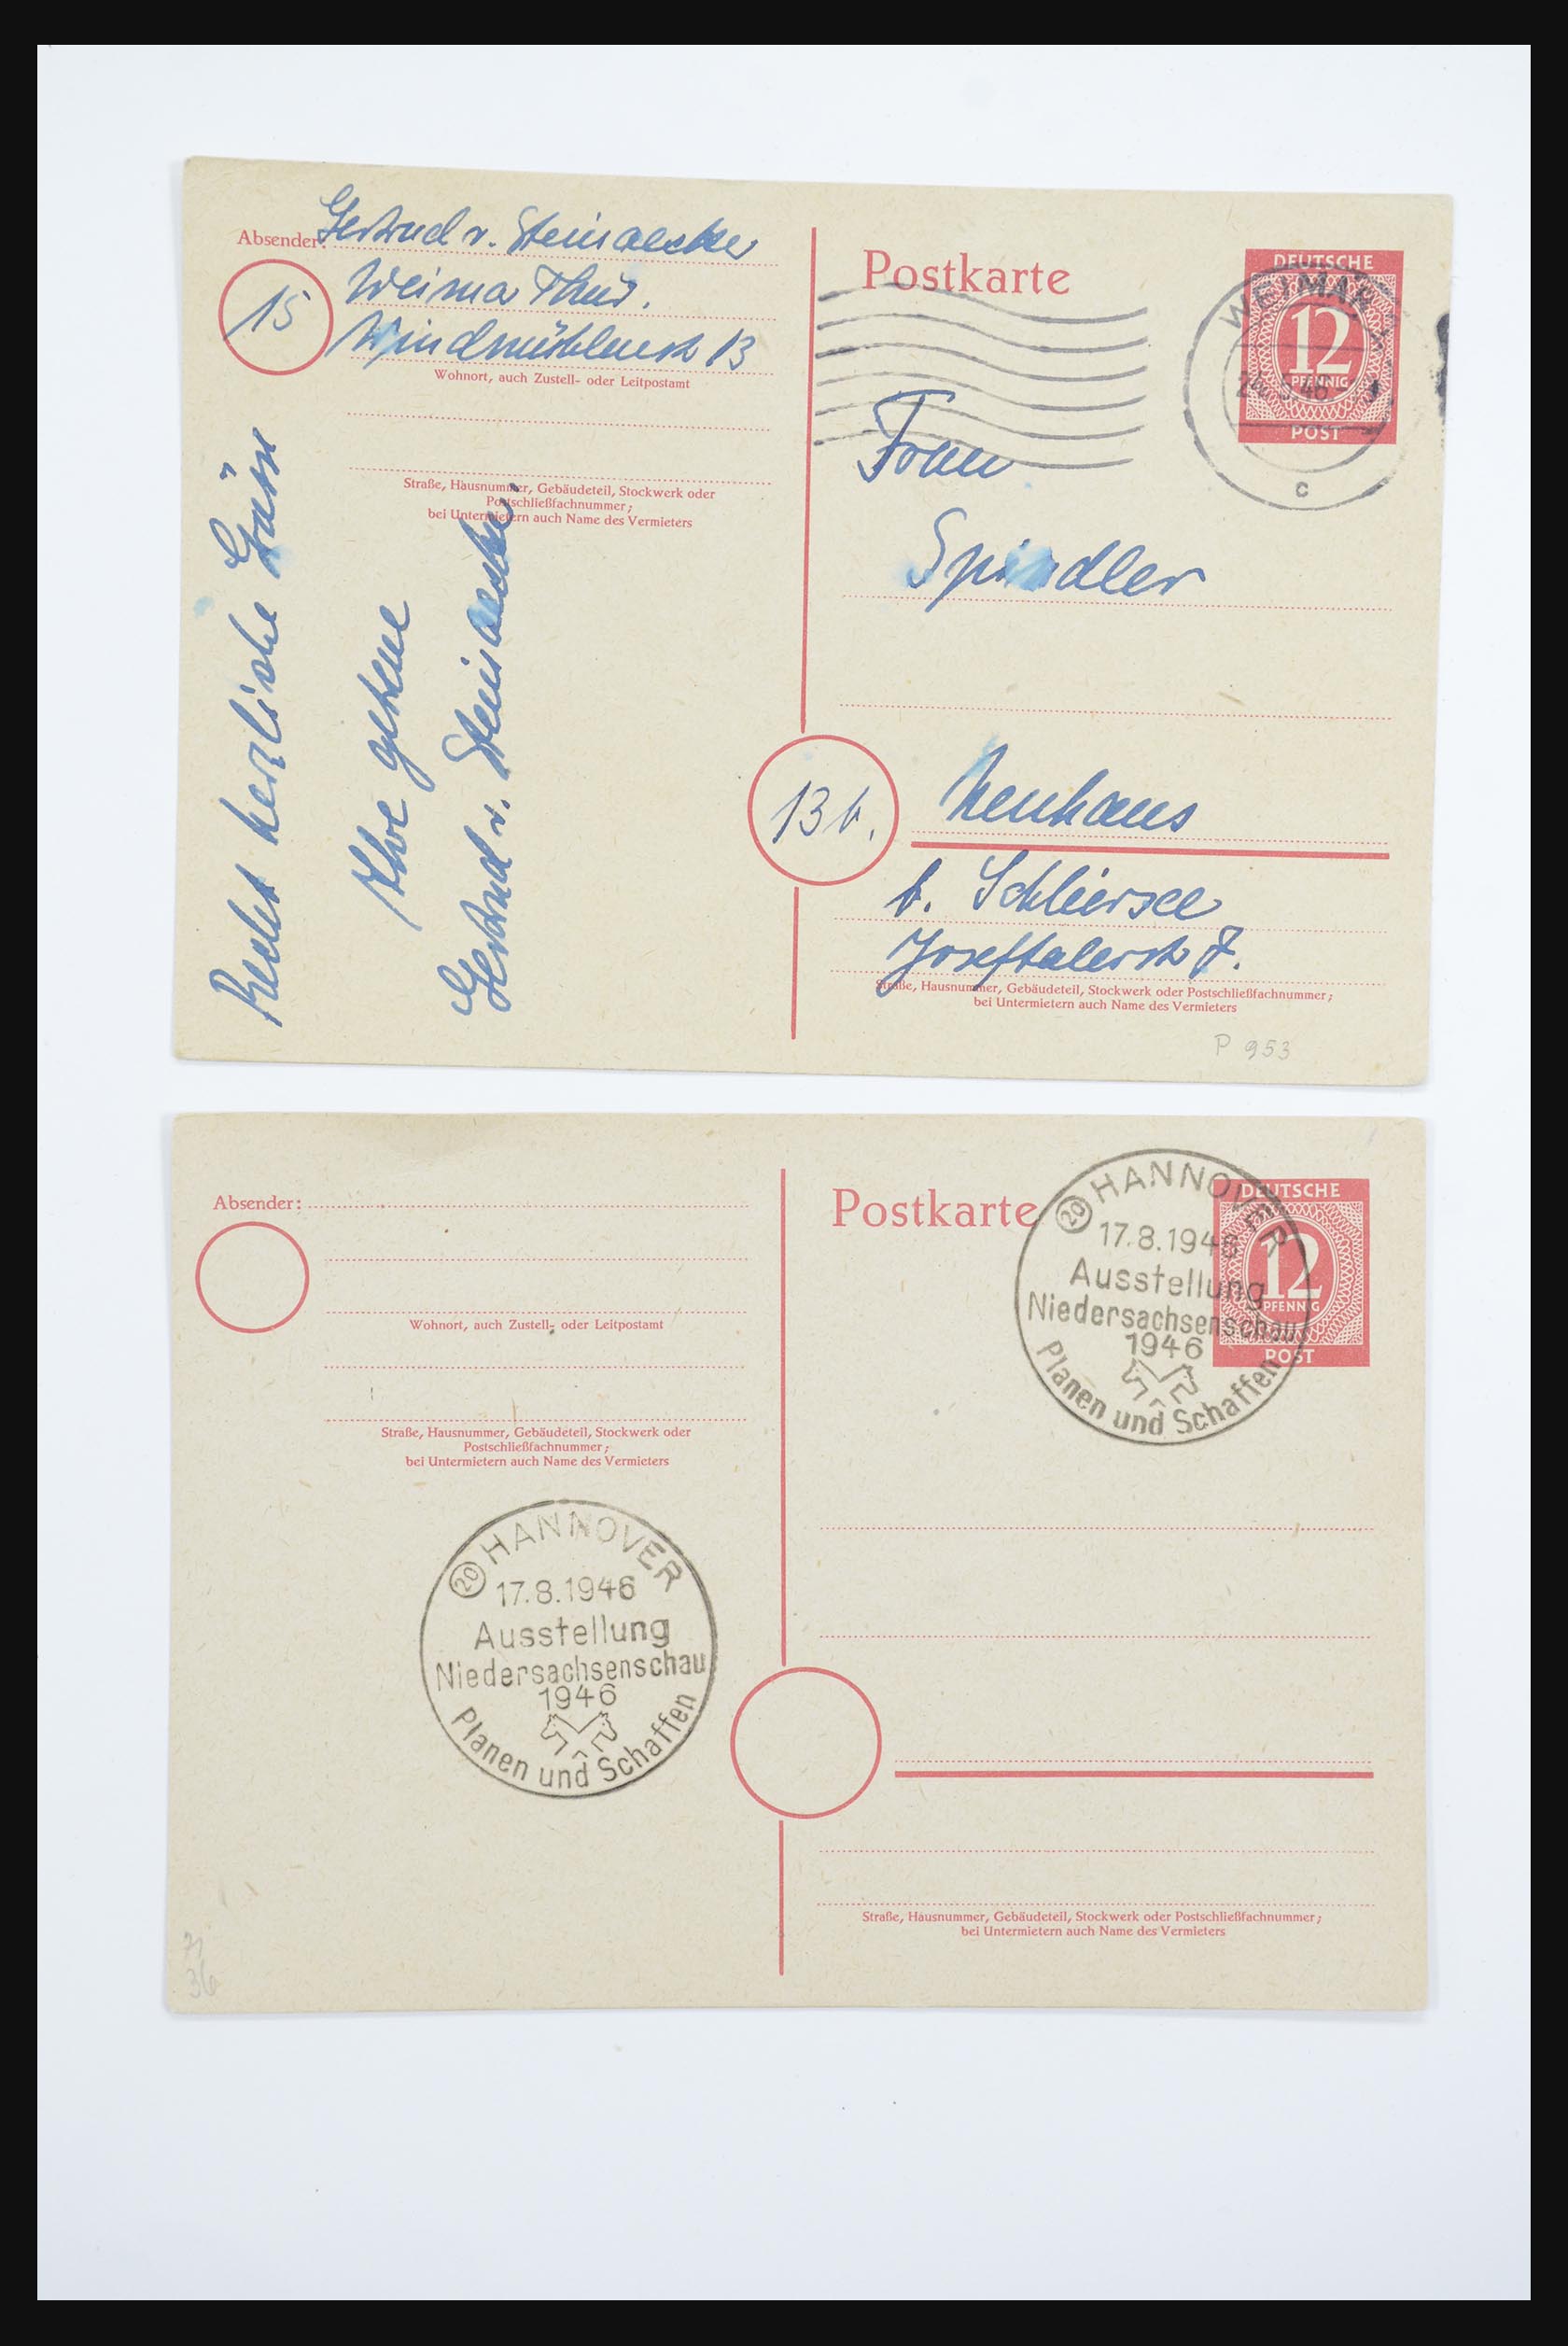 Absender: Gertrud v. Steinaecker
15
Weimar Thür.
Windmühlenstr 13
Wohnort, auch Zustell- oder Leitpostamt
Straße, Hausnummer, Gebäudeteil, Stockwerk oder
Postschließfachnummer;
bei Untermietern auch Name des Vermieters
Recht herzliche Grüsse
Ihre getreue
Gertrud v. Steinaecker
Postkarte
DEUTSCHE
12
PFENNIG
POST
WEIMAR
c
Frau
Spindler
13 b.
Neuhaus
b. Schliersee
Joseftalerstr 7.
Straße, Hausnummer, Gebäudeteil, Stockwerk oder Postschließfachnummer;
bei Untermietern auch Name des Vermieters
P 953
Absender:
Wohnort, auch Zustell- oder Leitpostamt
Straße, Hausnummer, Gebäudeteil, Stockwerk oder
Postschließfachnummer;
bei Untermietern auch Name des Vermieters
Postkarte
DEUTSCHE
12
PFENNIG
POST
20 HANNOVER
17.8.1946
Ausstellung
Niedersachsenschau
1946
Planen und Schaffen
20 HANNOVER
17.8.1946
Ausstellung
Niedersachsenschau
1946
Planen und Schaffen
Straße, Hausnummer, Gebäudeteil, Stockwerk oder Postschließfachnummer;
bei Untermietern auch Name des Vermieters
36